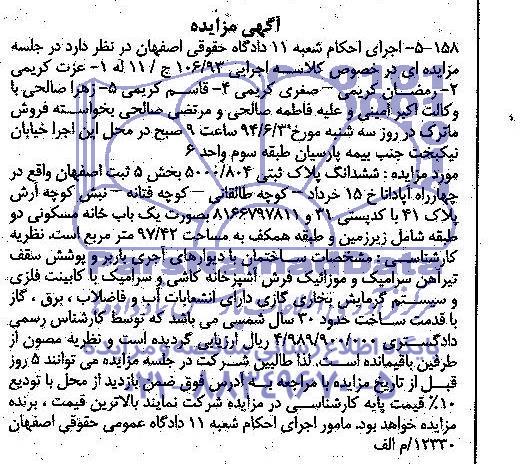 آگهی مزایده
۵-۱۵۸- اجرای احکام شعبه ۱۱ دادگاه حقوقی اصفهان در نظر دارد در جلسه
مزایده ای در خصوص کلاسه اجرایی ۱۰۶/۹۳ ج / ۱۱ له ۱- عزت کریمی
۲- رمضان کریمی – صغری کریمی ۴- قاسم کریمی ۵- زهرا صالحی با
وکالت اکبر امینی و علیه فاطمه صالحی و مرتضی صالحی بخواسته فروش
ماترک در روز سه شنبه مورخ ۹۴/۶/۳ ساعت ۹ صبح در محل این اجرا خیابان
نیکبخت جنب بیمه پارسیان طبقه سوم واحد ۶
مورد مزایده : ششدانگ پلاک ثبتی ۵۰۰۰/۸۰۴ بخش ۵ ثبت اصفهان واقع در
چهارراه آپادانا خ ۱۵ خرداد – کوچه طالقانی – کوچه فتانه – نبش کوچه آرش
پلاک ۴۱ با کدپستی ۳۱ و ۸۱۶۶۷۹۷۸۱۱ بصورت یک باب خانه مسکونی دو
طبقه شامل زیرزمین و طبقه همکف به مساحت ۹۷/۴۲ متر مربع است. نظریه
کارشناسی : مشخصات ساختمان با دیوارهای آجری باربر و پوشش سقف
تیرآهن سرامیک و موزائیک فرش آشپزخانه کاشی و سرامیک با کابینت فلزی
و سیستم گرمایش بخاری گازی دارای انشعابات آب و فاضلاب ، برق ، گاز
با قدمت ساخت حدود ۳۰ سال شمسی می باشد که توسط کارشناس رسمی
دادگستری ۴/۹۸۹/۹۰۰/۰۰۰ ریال ارزیابی گردیده است و نظریه مصون از
طرفین باقیمانده است. لذا طالبین شرکت در جلسه مزایده می توانند ۵ روز
قبل از تاریخ مزایده با مراجعه به آدرس فوق ضمن بازدید از محل با تودیع
۱۰٪ قیمت پایه کارشناسی در مزایده شرکت نمایند بالاترین قیمت ، برنده
مزایده خواهد بود. مامور اجرای احکام شعبه ۱۱ دادگاه عمومی حقوقی اصفهان
۱۲۳۳۰/م الف
ParsNamadData
۰۲۱-۸۸۳۴۹۶۷۰-۵